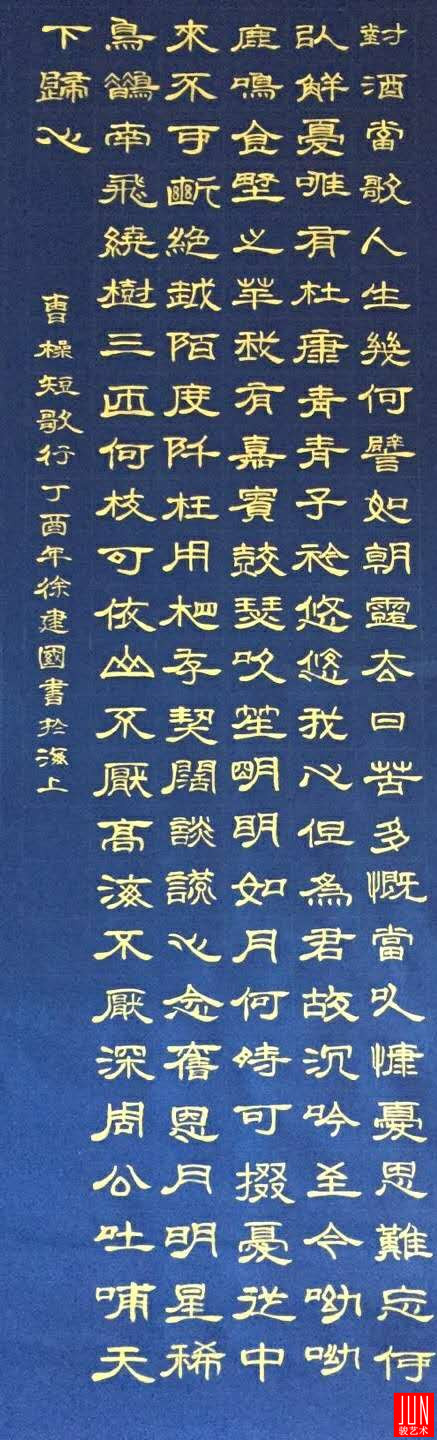 對酒當歌人生幾何譬如朝露去日苦多慨當以慷憂思難忘何
以解憂唯有杜康青青子衿悠悠我心但為君故沉吟至今呦呦
鹿鳴食野之苹我有嘉賓鼓瑟吹笙明明如月何時可掇憂從中
來不可斷絕越陌度阡枉用相存契闊談讌心念舊恩月明星稀
烏鵲南飛繞樹三匝何枝可依山不厭高海不厭深周公吐哺天
下歸心
曹操短歌行丁酉年徐建國書於海上
JUN
骏艺术